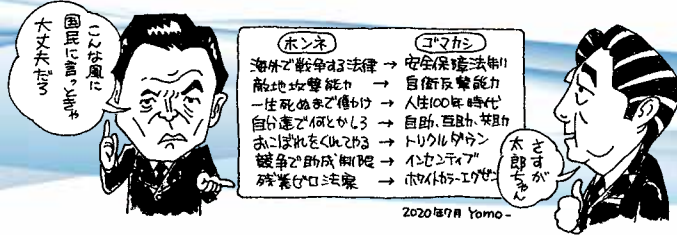 こんな風に
国民に言っときゃ
大丈夫だろ
ホンネ ゴマカシ
海外で戦争する法律 → 安全保障法制
敵地攻撃能力 → 自衛反撃能力
一生死ぬまで働かけ → 人生100年時代
自分達で何とかしろ → 自助、互助、共助
おこぼれをくれてやる → トリクルダウン
競争で助成制限 → インセンティブ
残業ゼロ法案 → ホワイトカラーエグゼン
さすが
太郎ちゃん
2020年7月 Yomo-